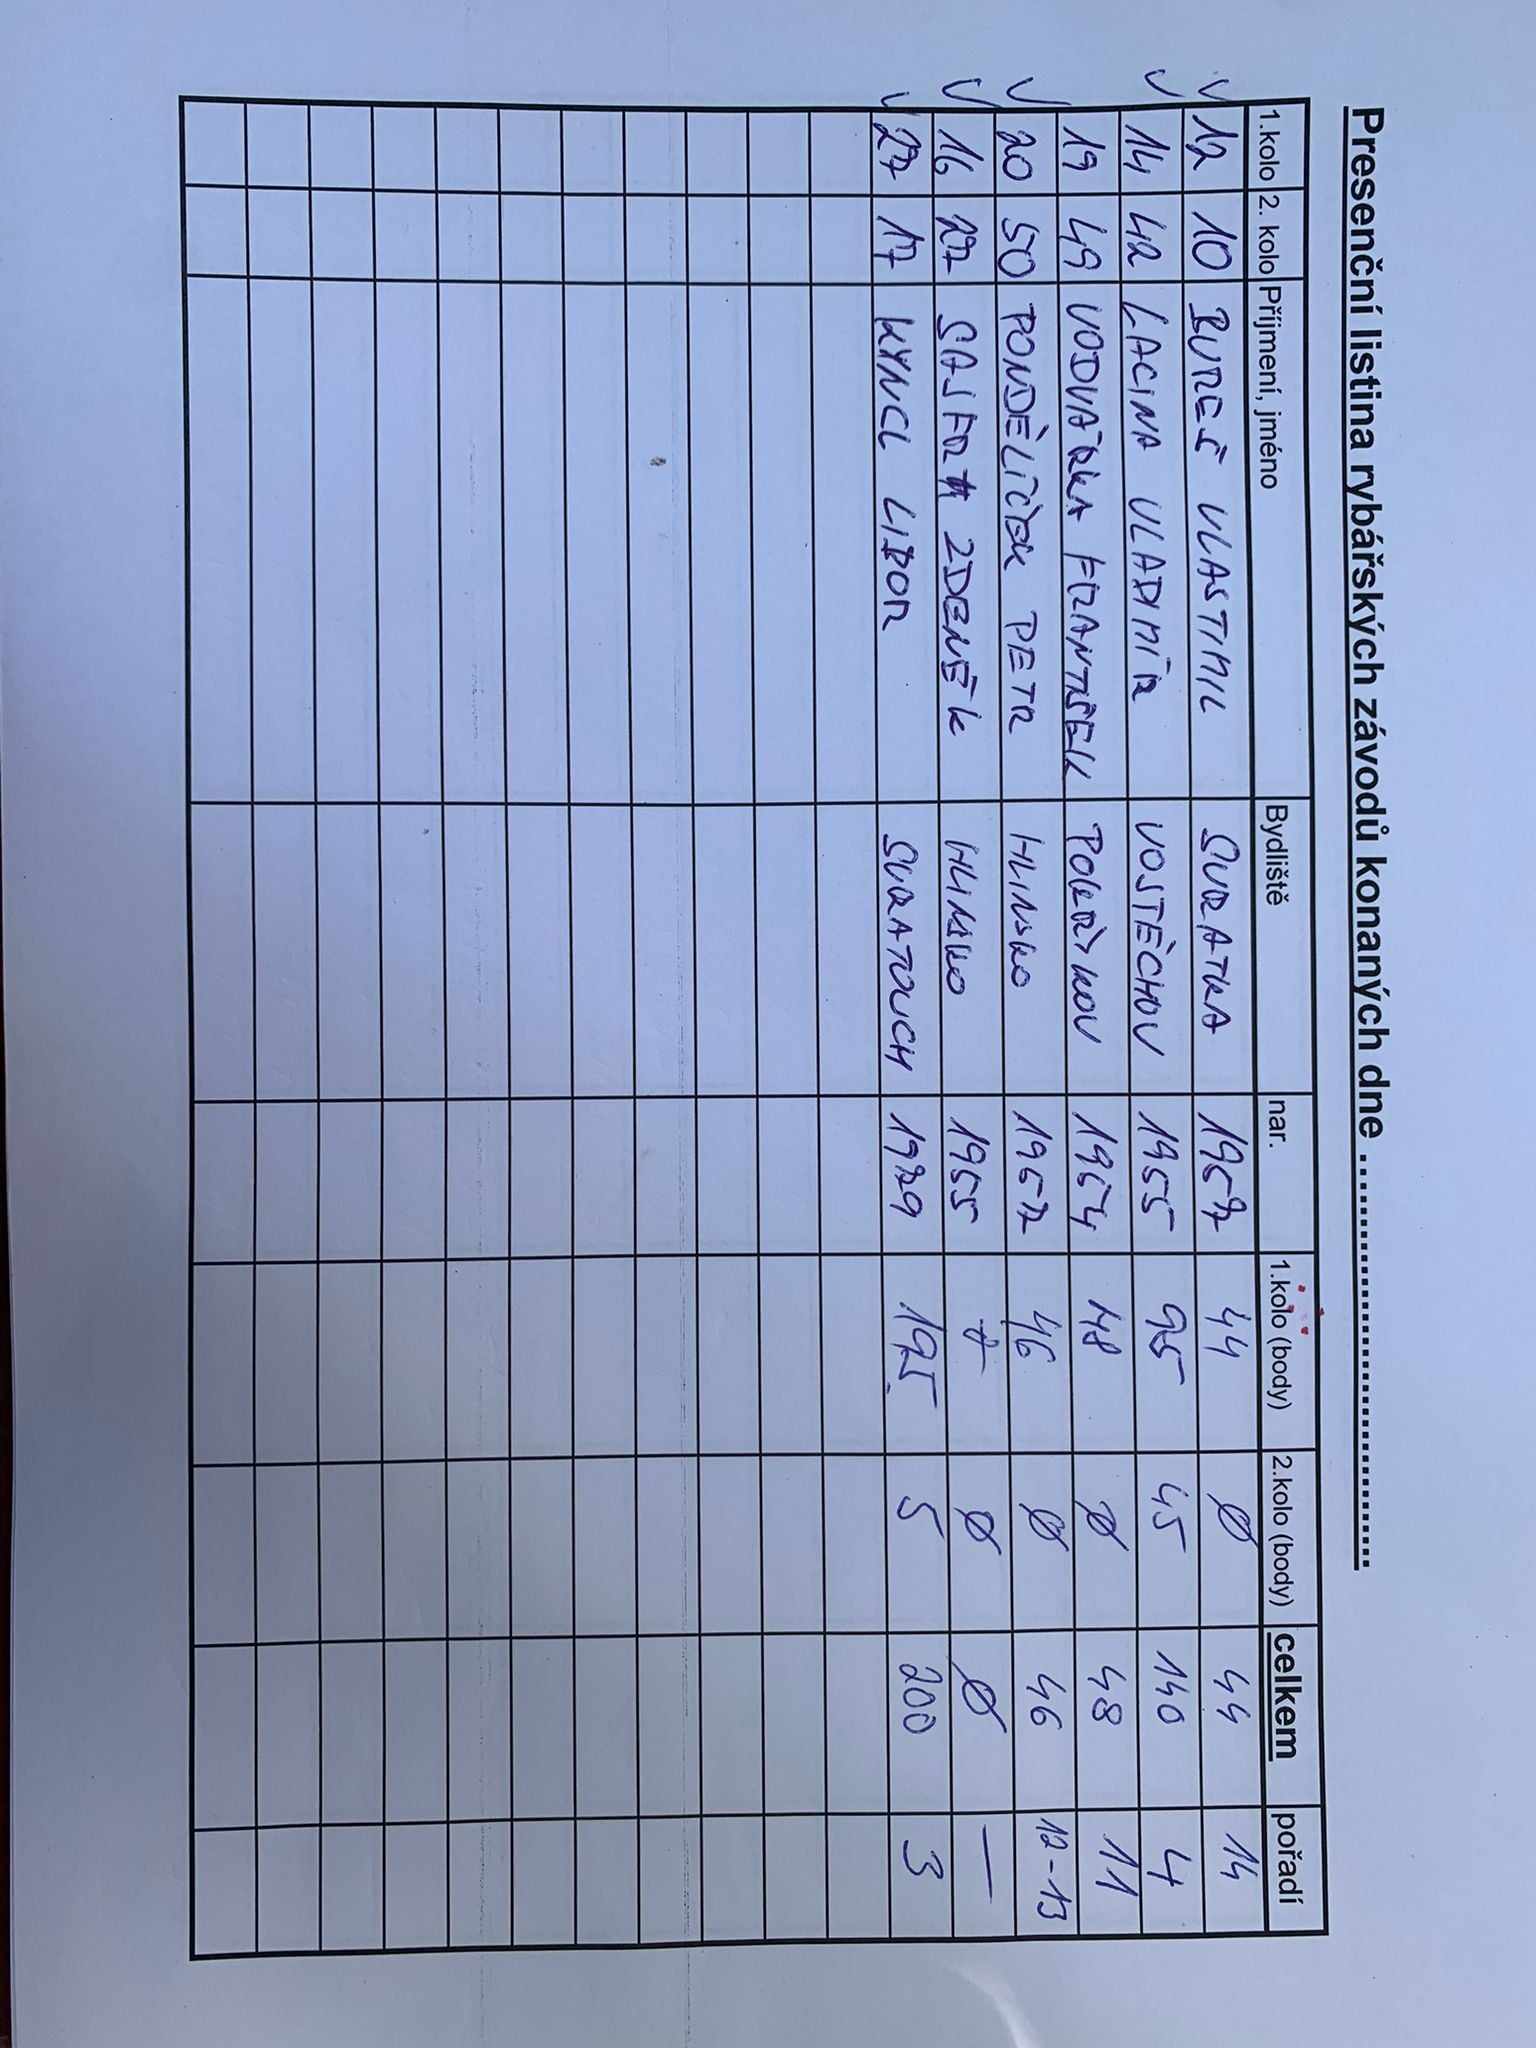 Presenční listina rybářských závodů konaných dne ..............................................
1.kolo 2. kolo Příjmení, jméno Bydliště nar. 1.kolo (body) 2.kolo (body) celkem pořadí
✓ 12 10 BUREŠ VLASTIMIL SVRATKA 1957 44 Ø 44 14
✓ 14 42 LACINA VLADIMÍR VOSTĚCHOV 1955 95 45 140 4
19 49 VODVÁŘKA FRANTIŠEK POKŘÍKOV 1954 48 Ø 48 11
✓ 20 50 PONDĚLÍČEK PETR HLINSKO 1957 46 Ø 46 12-13
✓ 16 27 ZDENĚK HLINSKO 1955 Ø Ø —
✓ 27 17 KYNCL LIBOR SVRATOUCH 1979 195 5 200 3